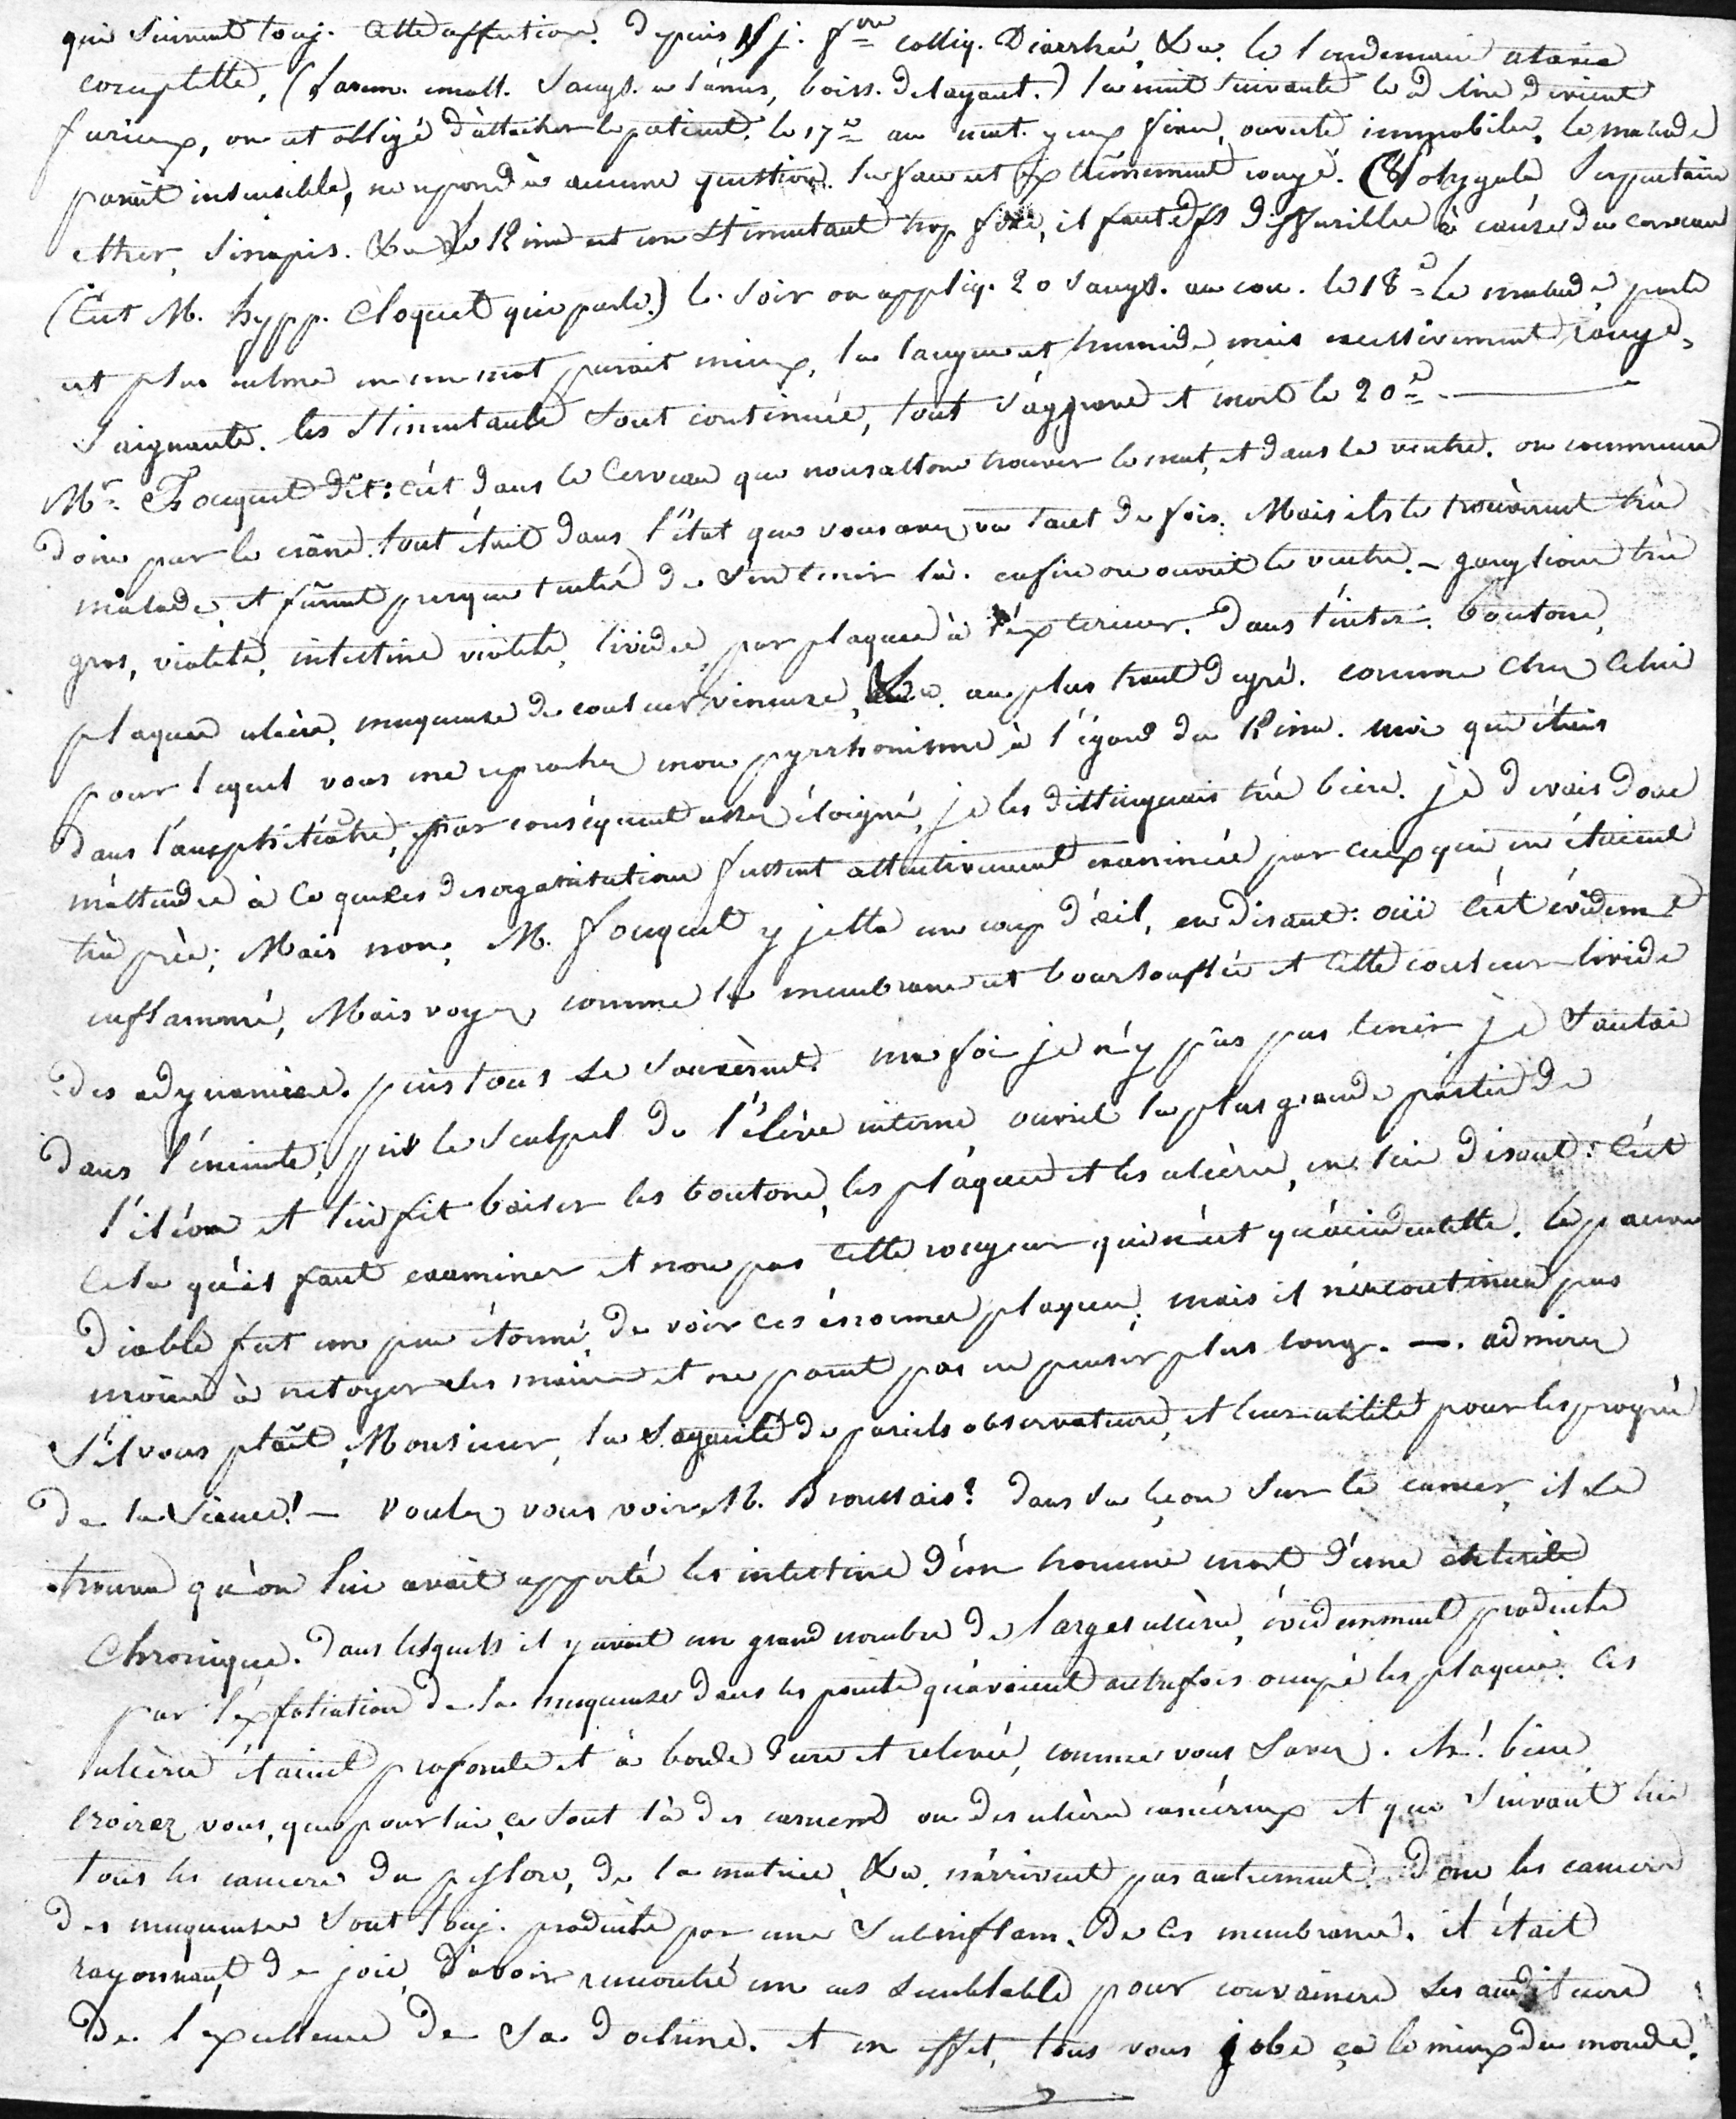 qui suivent touj. cette affection. depuis 15 j. fvre colliq. Diarrhée, &a. le lendemain ataxie
complette, (Lavem. emoll. Sangs. a l'anus, boiss. delayant.) la nuit suivante le délire devient
furieux, on est obligé d'attacher le patient. le 17e au mat. yeux fixes, ouverts immobiles, le malade
parait insensible, ne repond à aucune question. la face est extrêmement rouge. (Polygala, Serpentaire
ether, Sinapis. &a) le Kina est un Stimulant trop fixe, il faut des diffusibles à cause du cerveau
(C'est M. Hypp. Cloquet qui parle.) le soir on appliq. 20 sangs. au cou. le 18e le malade parle
est plus calme en un mot parait mieux, la langue est humide, mais excessivement rouge,
Saignante. les Stimulants sont continués, tout s'aggrave et mort le 20e. —
Mr. Fouquet dit: c'est dans le Cerveau que nous allons trouver le mal, et dans le ventre. on commence
donc par le crâne. tout était dans l'état que vous avez vu tant de fois. Mais ils le trouvèrent très
malade, et furent presque tentés de s'en tenir là. enfin on ouvrit le ventre. – ganglions très
gros, violets, intestins violets, livides, par plaques à l'exterieur. Dans l'intér. boutons,
plaques, ulcères, muqueuse de couleur vineuse, &a. au plus haut degré. comme chez celui
pour lequel vous me reprochez mon pyrrhonisme à l'égard du Kina. moi qui étais
dans l'amphitéatre, par conséquent assez éloigné, je les distinguais très bien. je devais donc
m'attendre à ce que ces desorganisations fussent attentivement examinées par ceux qui en étaient
très près; Mais non, M. fouquet y jetta un coup d'oeil, en disant: oui c'est évidemt
enflammé, Mais voyez comme la membrane est boursouflée et cette couleur livide
des adynamies. puis tous se sauvèrent. ma foi je n'y pus pas tenir je sautai
dans l'enceinte, pris le scalpel de l'élève interne, ouvris la plus grande partie de
l'iléon et lui fis baiser les boutons, les plaques et les ulcères, en lui disant: C'est
cela qu'il faut examiner et non pas cette rougeur qui n'est qu'accidentelle. le pauvre
diable fut un peu étonné de voir ces énormes plaques; mais il n'en continua pas
moins à netoyer ses mains et ne parut pas en penser plus long. —. admirez
S'il vous plaît, Monsieur, la sagacité de pareils observateurs, et leur utilité pour les progrès
de la Science! — Voulez vous voir M. Broussais? dans sa leçon sur le cancer, il se
trouva qu'on lui avait apporté les intestins d'un homme mort d'une entérite
Chronique. Dans lesquels il y avait un grand nombre de larges ulcères, évidemment produits
par l'exfoliation de la muqueuse dans les points qu'avaient autrefois occupé les plaques. Ces
ulcères étaient profonds et à bords durs et relevés, comme vous Savez. eh! bien
croirez vous, que pour lui, ce sont là des cancers ou des ulcères cancéreux et que suivant lui
tous les cancers du pylore, de la matrice, &a. n'arrivent pas autrement. Donc les cancers
des muqueuses sont touj. produits par une Subinflam. de ces membranes. il était
rayonnant de joie d'avoir rencontré un cas semblable pour convaincre ses auditeurs
de l'excellence de sa doctrine. et en effet, tous vous gobe ça le mieux du monde.